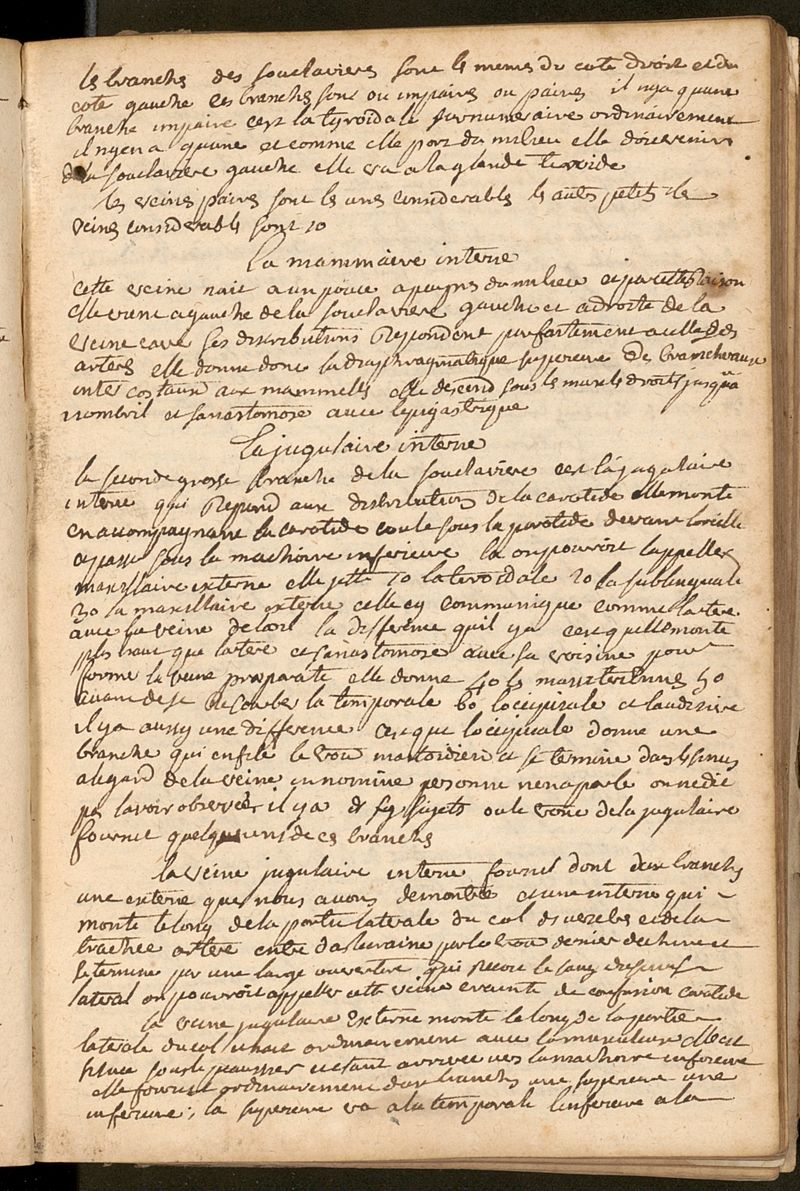 les branches des souclavieres sont les memes du coté droit et du
coté gauche ces branches sont ou impaires ou paires il nya quune
branche impaire cest la tyroidale surnumeraire ordinairement
il nyena quune et comme elle part du milieu elle doit venir
de la souclaviere gauche elle va a la glande tiroide
les veines paires sont les unes considerables les autres petites les
veines considerables sont 10
La mammaire interne
cette veine nait a un pouce a peu pres du milieu et par cette raison
elle vient a gauche de la souclaviere gauche et a droite de la
veine cave ses distributions Repondent parfaitement a celles des
arteres elle donne donc la diaphragmatique superieure des branches aux
intercostaux aux mammelles elle descend sous les muscles droits jusqua
nombril et sanastomose avec lepigastrique
La jugulaire interne
la seconde grosse branche de la souclaviere est la jugulaire
interne qui Repond aux distributions de la carotide elle monte
en accompagnant la carotide coule sous la parotide devant loreille
et passe sous la machoire inferieure la on pourroit lappeller
maxillaire externe elle jette 1o la tiroidale 2o la sublinguale
3o la maxillaire externe celle cy communique comme lartere
avec la veine de loeil la difference quil ya cest quelle monte
plus haut que lartere et sanastomose avec sa voisine pour
former la veine preparate elle donne 4o les masseteriennes 5o
avant de se Recourber la temporale 6o locipitale et lauditive
il ya aussy une difference cest que locipitale donne une
branche qui enfile le trou mastoidien et se termine dans les sinus
a legard de la veine innominé personne nen a parlé on ne dit
pas lavoir observé il ya des sujets ou le tronc de la jugulaire
fournit quelques uns de ces branches
la veine jugulaire interne fournit dont deux branches
une externe que nous avons demontré et une interne qui
monte le long de la partie laterale du col des vertebres et de la
trachée artere entre dans le crane par le trou dernier dechiré et
se termine par une large ouverture qui Recoit le sang du sinus
lateral on pourroit appeller cette veine crainte de confusion carotide
la veine jugulaire externe monte le long de la partie
laterale du col elle nait ordinairement avec la musculaire elle est
située sous le peaussier et etant arrivée vers la machoire inferieure
elle fournit ordinairement deux branches une superieure une
inferieure, la superieure va a la temporale linferieure a la